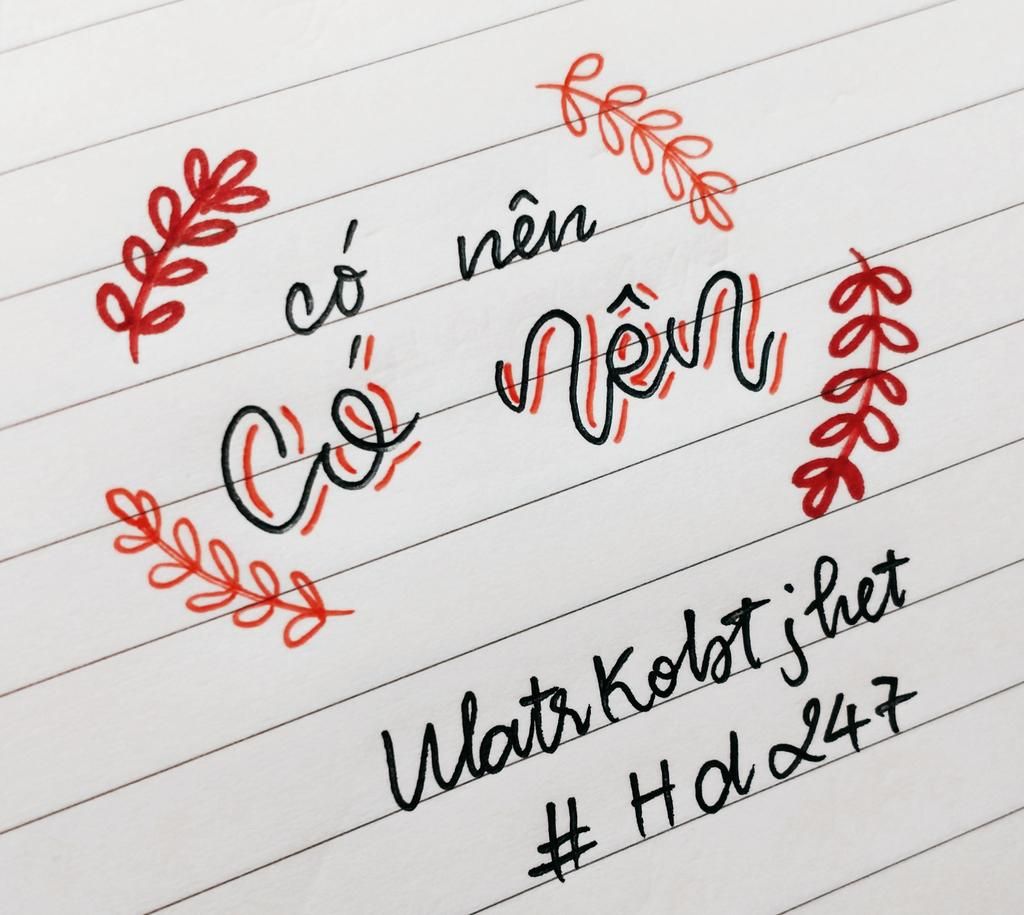 có nên
Có nên
WatsKobtjhet
# Hd247